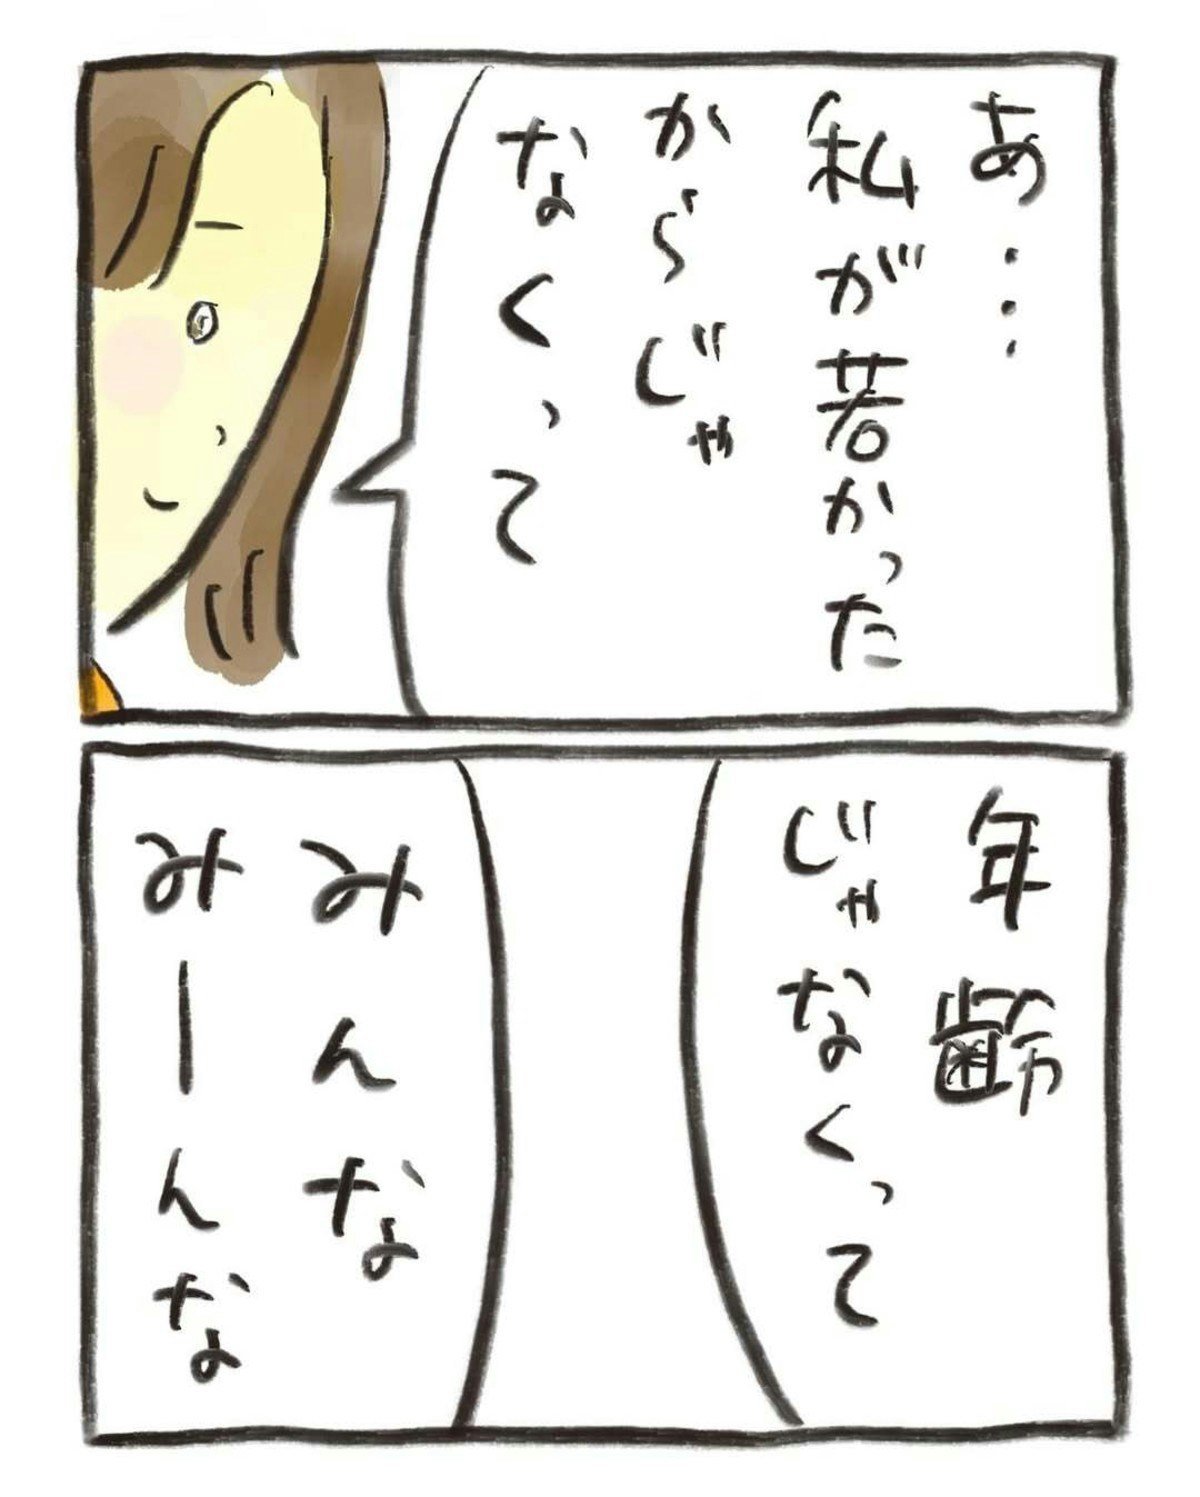 あ…
私が若かった
からじゃ
なくって
年齢
じゃなくって
みんな
みーんな